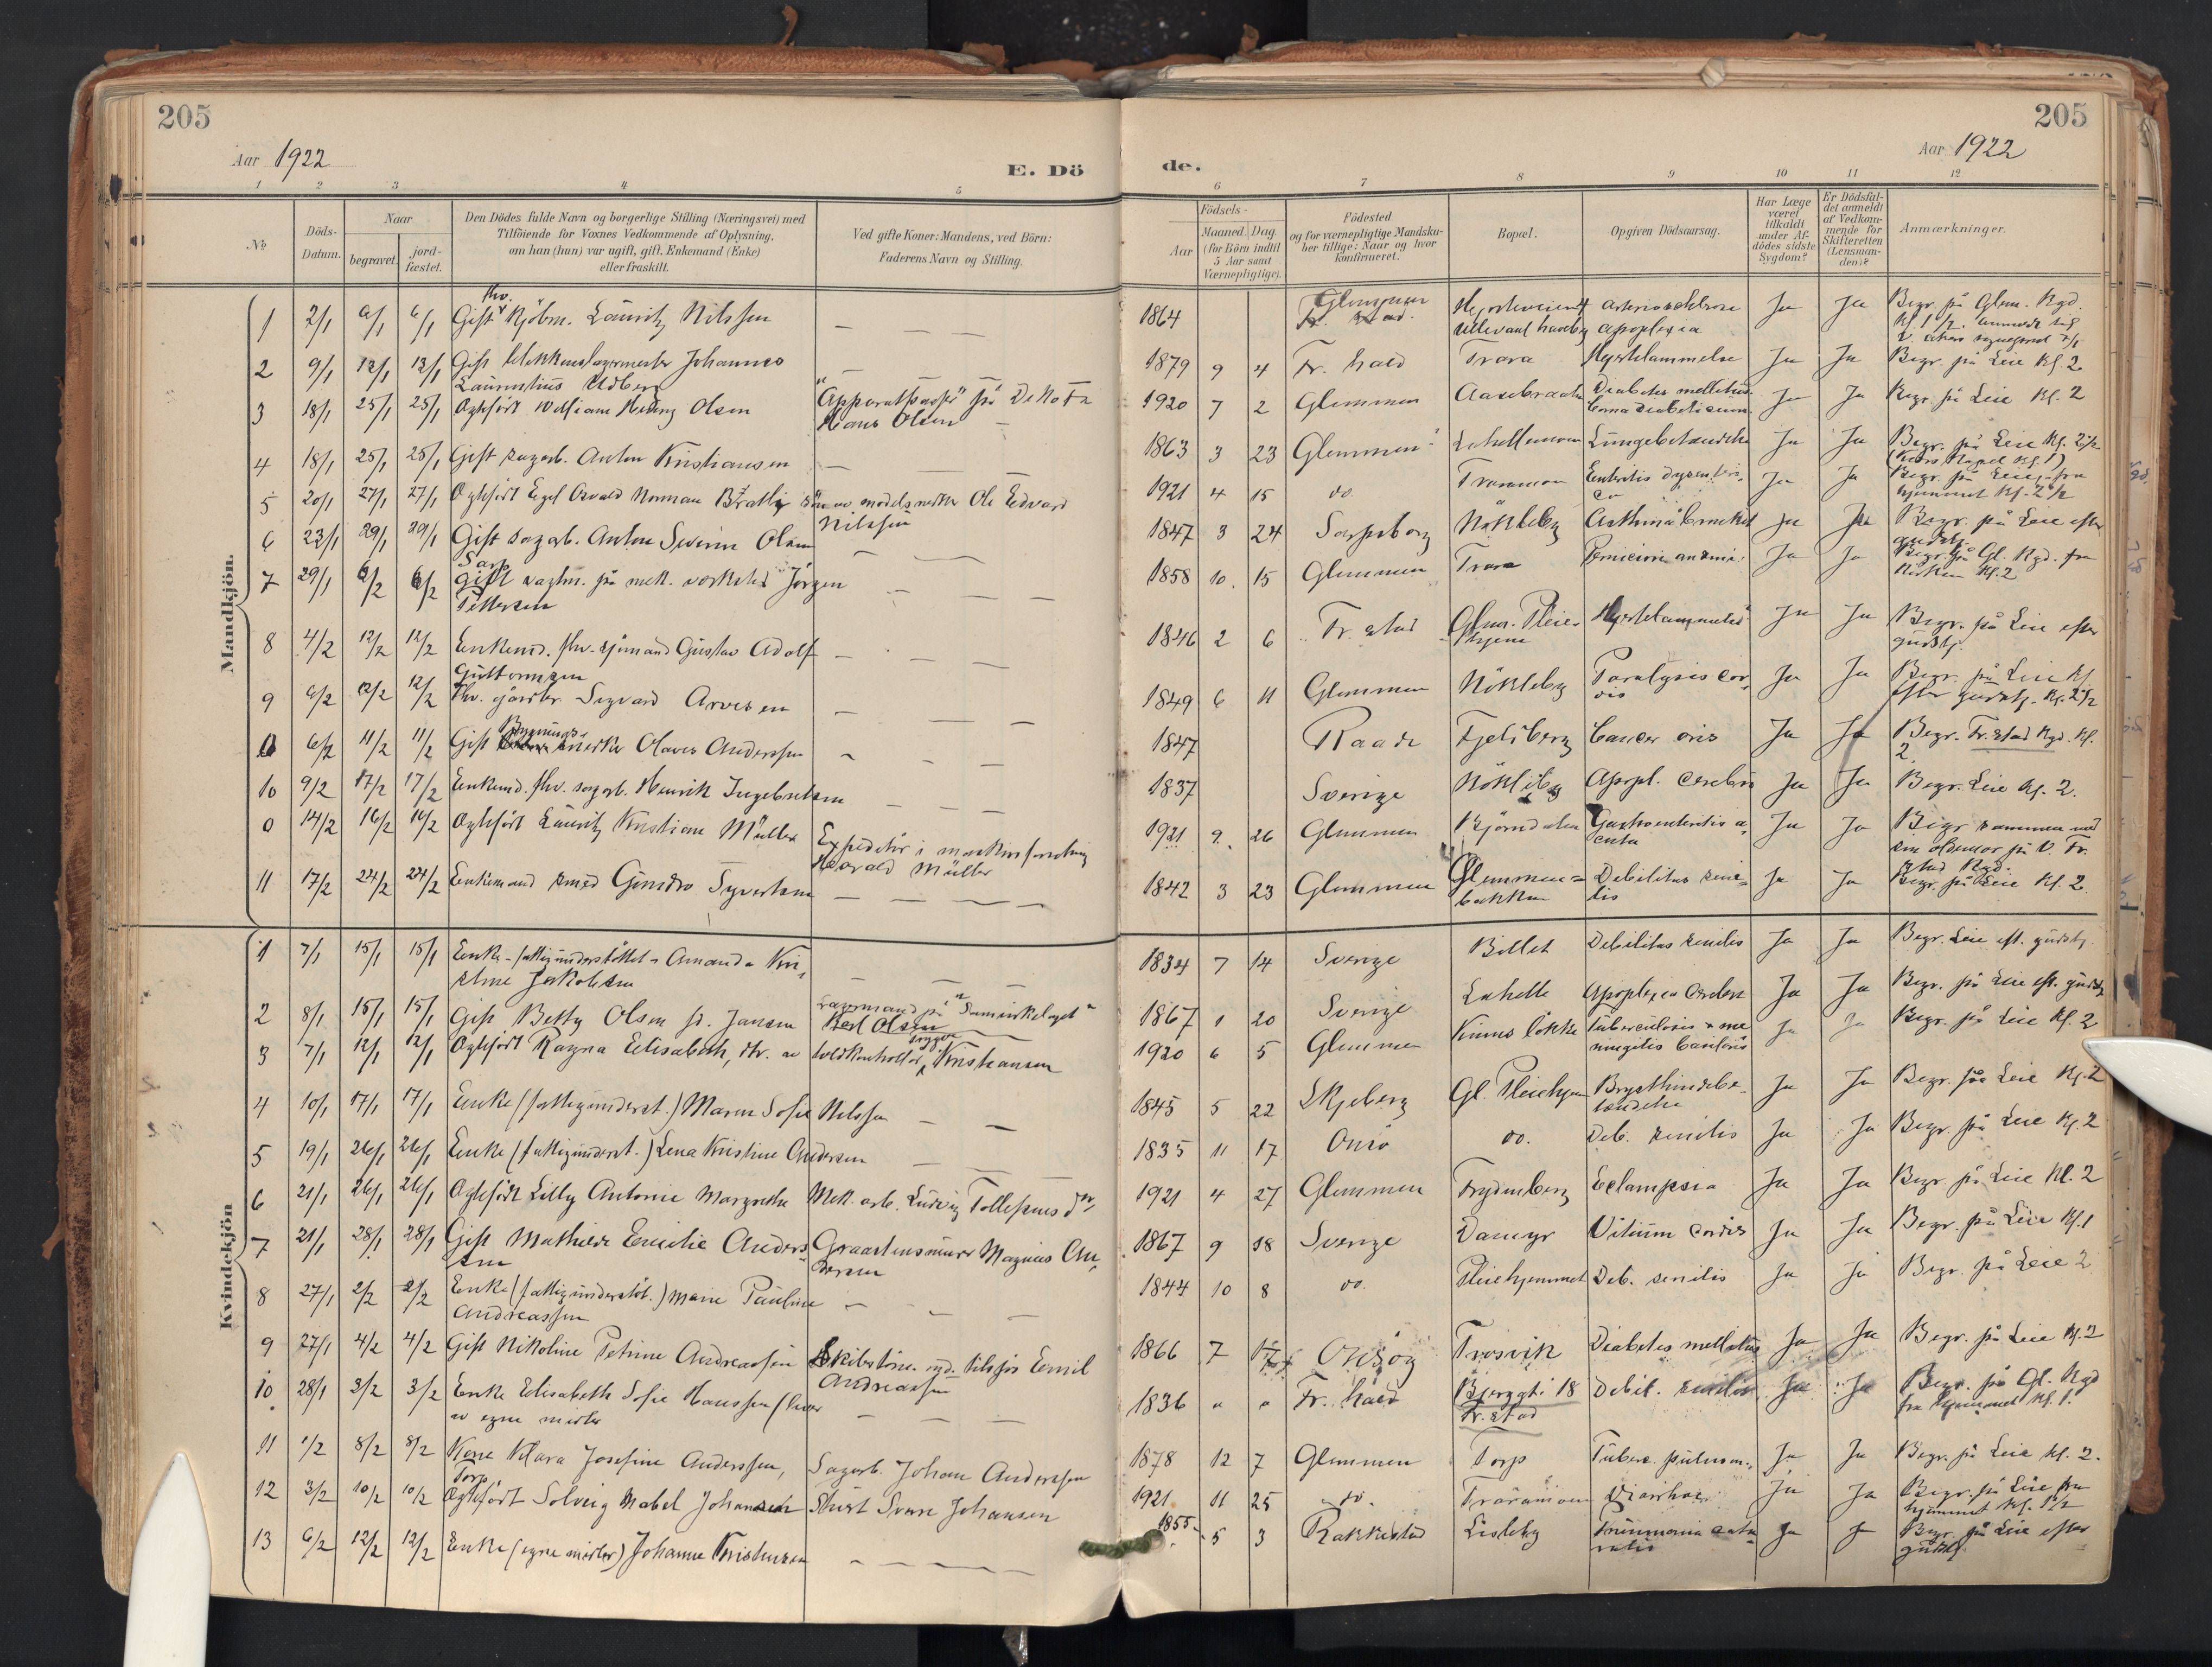 205
205
Aar 1922
Aar 1922
E. Dö
de.
1 2 3 4 5
6 7 8 9 10 11 12
No
Döds-
Datum.
Naar
begravet.
jord-
fæstet.
Den Dödes fulde Navn og borgerlige Stilling (Næringsvei) med
Tilföiende for Voxnes Vedkommende af Oplysning,
om han (hun) var ugift, gift, Enkemand (Enke)
eller fraskilt.
Ved gifte Koner: Mandens, ved Börn:
Faderens Navn og Stilling.
Födsels-
Aar
Maaned. Dag.
(for Börn indtil
5 Aar samt
Værnepligtige).
Födested
og for værnepligtige Mandska-
ber tillige: Naar og hvor
konfirmeret.
Bopæl.
Opgiven Dödsaarsag.
Har Læge
været
tilkaldt
under Af-
dödes sidste
Sygdom?
Er Dödsfal-
det anmeldt
af Vedkom-
mende for
Skifteretten
(Lensman-
den)?
Anmærkninger.
Mandkjön.
1 2/1 6/1 6/1 Gift fhv. Kjöbm. Lauritz Nilssen — — — 1864 Glemmen apoplexia Ja Ja Begr. på Glem. Kgd.
2 9/1 12/1 12/1 Gift blikkenslagermester Johannes
Laurentius Udberg — — — 1879 9 4 Fr. hald Trara Hjertelammelse Ja Ja Begr. på Leie Kl. 2
3 18/1 25/1 25/1 Ægtefödt William Olsen
"Apparatpasser" på DeNoFa
Hans Olsen 1920 7 2 Glemmen Diabetes mellitus
Coma diabeticum Ja Ja Begr. på Leie Kl. 2
4 18/1 25/1 25/1 Gift sagarb. Anton Kristiansen — — — 1863 3 23 Glemmen Lungebetændelse Ja Ja Begr. på Leie Kl. 2 1/2
5 20/1 27/1 27/1 Ægtefödt Egel Osvald Norman Bratli sön av modelsnekker Ole Edvard
Nilssen 1921 4 15 do. Ja Ja Begr. på Leie, fra
hjemmet Kl. 2 1/2
6 23/1 29/1 29/1 Gift sagarb. Anton Severin Olsen
Sarp — — 1847 3 24 Sarpsborg Nökleby Ja Ja Begr. på Leie efter
gudstj.
7 29/1 6/2 6/2 Gift vagtm. på mek. verksted Jörgen
Pettersen — — — 1858 10 15 Glemmen Trara Ja Ja Begr. på Gl. Kgd. fra
Kirken Kl. 2
8 4/2 12/2 12/2 Enkemd. fhv. sjömand Gustav Adolf
Guttormsen — — — 1846 2 6 Fr. stad Glem. Pleie-
hjem Hjertelammelse Ja Ja Begr. på Leie efter
gudstj.
9 6/2 12/2 12/2 Fhv. gårdbr. Sigvard Arvesen — — — 1849 6 11 Glemmen Nökleby Paralysis cor-
dis Ja Ja Begr. på Leie Kl.
efter gudstj. Kl. 2 1/2
0 6/2 11/2 11/2 Gift Bygnings-
snekker Olaves Anderssen — — — 1847 Raade Fjeldberg Cancer oris Ja Ja Begr. Fr.stad Kgd. Kl.
2.
10 9/2 17/2 17/2 Enkemd. fhv. sagarb. Henrik Ingebretsen — — — 1837 Sverige Nökleby Apopl. cerebri Ja Ja Begr. Leie Kl. 2.
0 14/2 16/2 16/2 Ægtefödt Lauritz Kristian Müller Expeditör i
Harald Müller 1921 9 26 Glemmen Björndalen Gastroenteritis a-
cuta Ja Ja Begr. sammen med
sin oldemor på V. Fr.
stad Kgd.
11 17/2 24/2 24/2 Enkemand smed Syvertsen — — — 1842 3 23 Glemmen Glemmen-
bakken Debilitas seni-
lis Ja Ja Begr. på Leie Kl. 2.
Kvindekjön
1 7/1 15/1 15/1 Enke - fattigunderstöttet - Amanda Kri-
stine Jakobsen — — — 1834 7 14 Sverige Billet Debilitas senilis Ja Ja Begr. Leie eft. gudstj.
2 8/1 15/1 15/1 Gift Betty Olsen fd. Jansen
Karl Olsen 1867 1 20 Sverige Lahelle Apoplexia cerebri Ja Ja Begr. på Leie eft. gudstj.
3 7/1 12/1 12/1 Ægtefödt Ragna Elisabeth, dtr. av toldkontrollör Trygve Kristiansen 1920 6 5 Glemmen Tuberculosis & me-
ningitis Ja Ja Begr. på Leie Kl. 2
4 10/1 17/1 17/1 Enke (fattigunderst.) Maren Sofie Nilssen — — 1845 5 22 Skjeberg Gl. Pleiehjem Brysthindebe-
tændelse Ja Ja Begr. på Leie Kl. 2
5 19/1 26/1 26/1 Enke (fattigunderst.) Lena Kristine Andersen — — 1835 11 17 Onsö do. Deb. senilis Ja Ja Begr. på Leie Kl. 2
6 21/1 26/1 26/1 Ægtefödt Lilly Antonie Margrethe Mek. arb. Ludvig Tollefsens dtr. 1921 4 27 Glemmen Frydenberg Eclampsia Ja Ja Begr. på Leie Kl. 2
7 21/1 28/1 28/1 Gift Mathilde Emilie Anders-
sen Graastensmurer Magnus An-
dersen 1867 9 18 Sverige Dammyr Vitium cordis Ja Ja Begr. på Leie Kl. 1
8 27/1 2/2 2/2 Enke (fattigunderstöt.) Marie Pauline
Andreassen — — — 1844 10 8 do. Pleiehjemmet Deb. senilis Ja Ja Begr. på Leie 2
9 27/1 4/2 4/2 Gift Nikoline Petrine Andreassen Emil
Andreassen 1866 7 Onsöy Trosvik Diabetes mellitus Ja Ja Begr. på Leie Kl. 2
10 28/1 3/2 3/2 Enke Elisabeth Sofie Hanssen (lever
av egne midler — — — 1836 " " Fr. hald Bjerggt. 18
Fr. stad Debil. senilis Ja Ja Begr. på Gl. Kgd
fra hjemmet Kl. 1.
11 1/2 8/2 8/2 Kone Klara Josefine Anderssen,
Torp Sagarb. Johan Anderssen 1878 12 7 Glemmen Torp Tuberc. pulmon. Ja Ja Begr. på Leie Kl. 2.
12 3/2 10/2 10/2 Ægtefödt Solveig Mabel Johansen Johansen 1921 11 25 do. Diarrhoe Ja Ja Begr. på Leie fra
hjemmet Kl. 1 1/2
13 6/2 12/2 12/2 Enke (egne midler) Johanne Kristensen — — — 1855 5 3 Rakkestad Lisleby Ja Ja Begr. på Leie efter
gudstj.